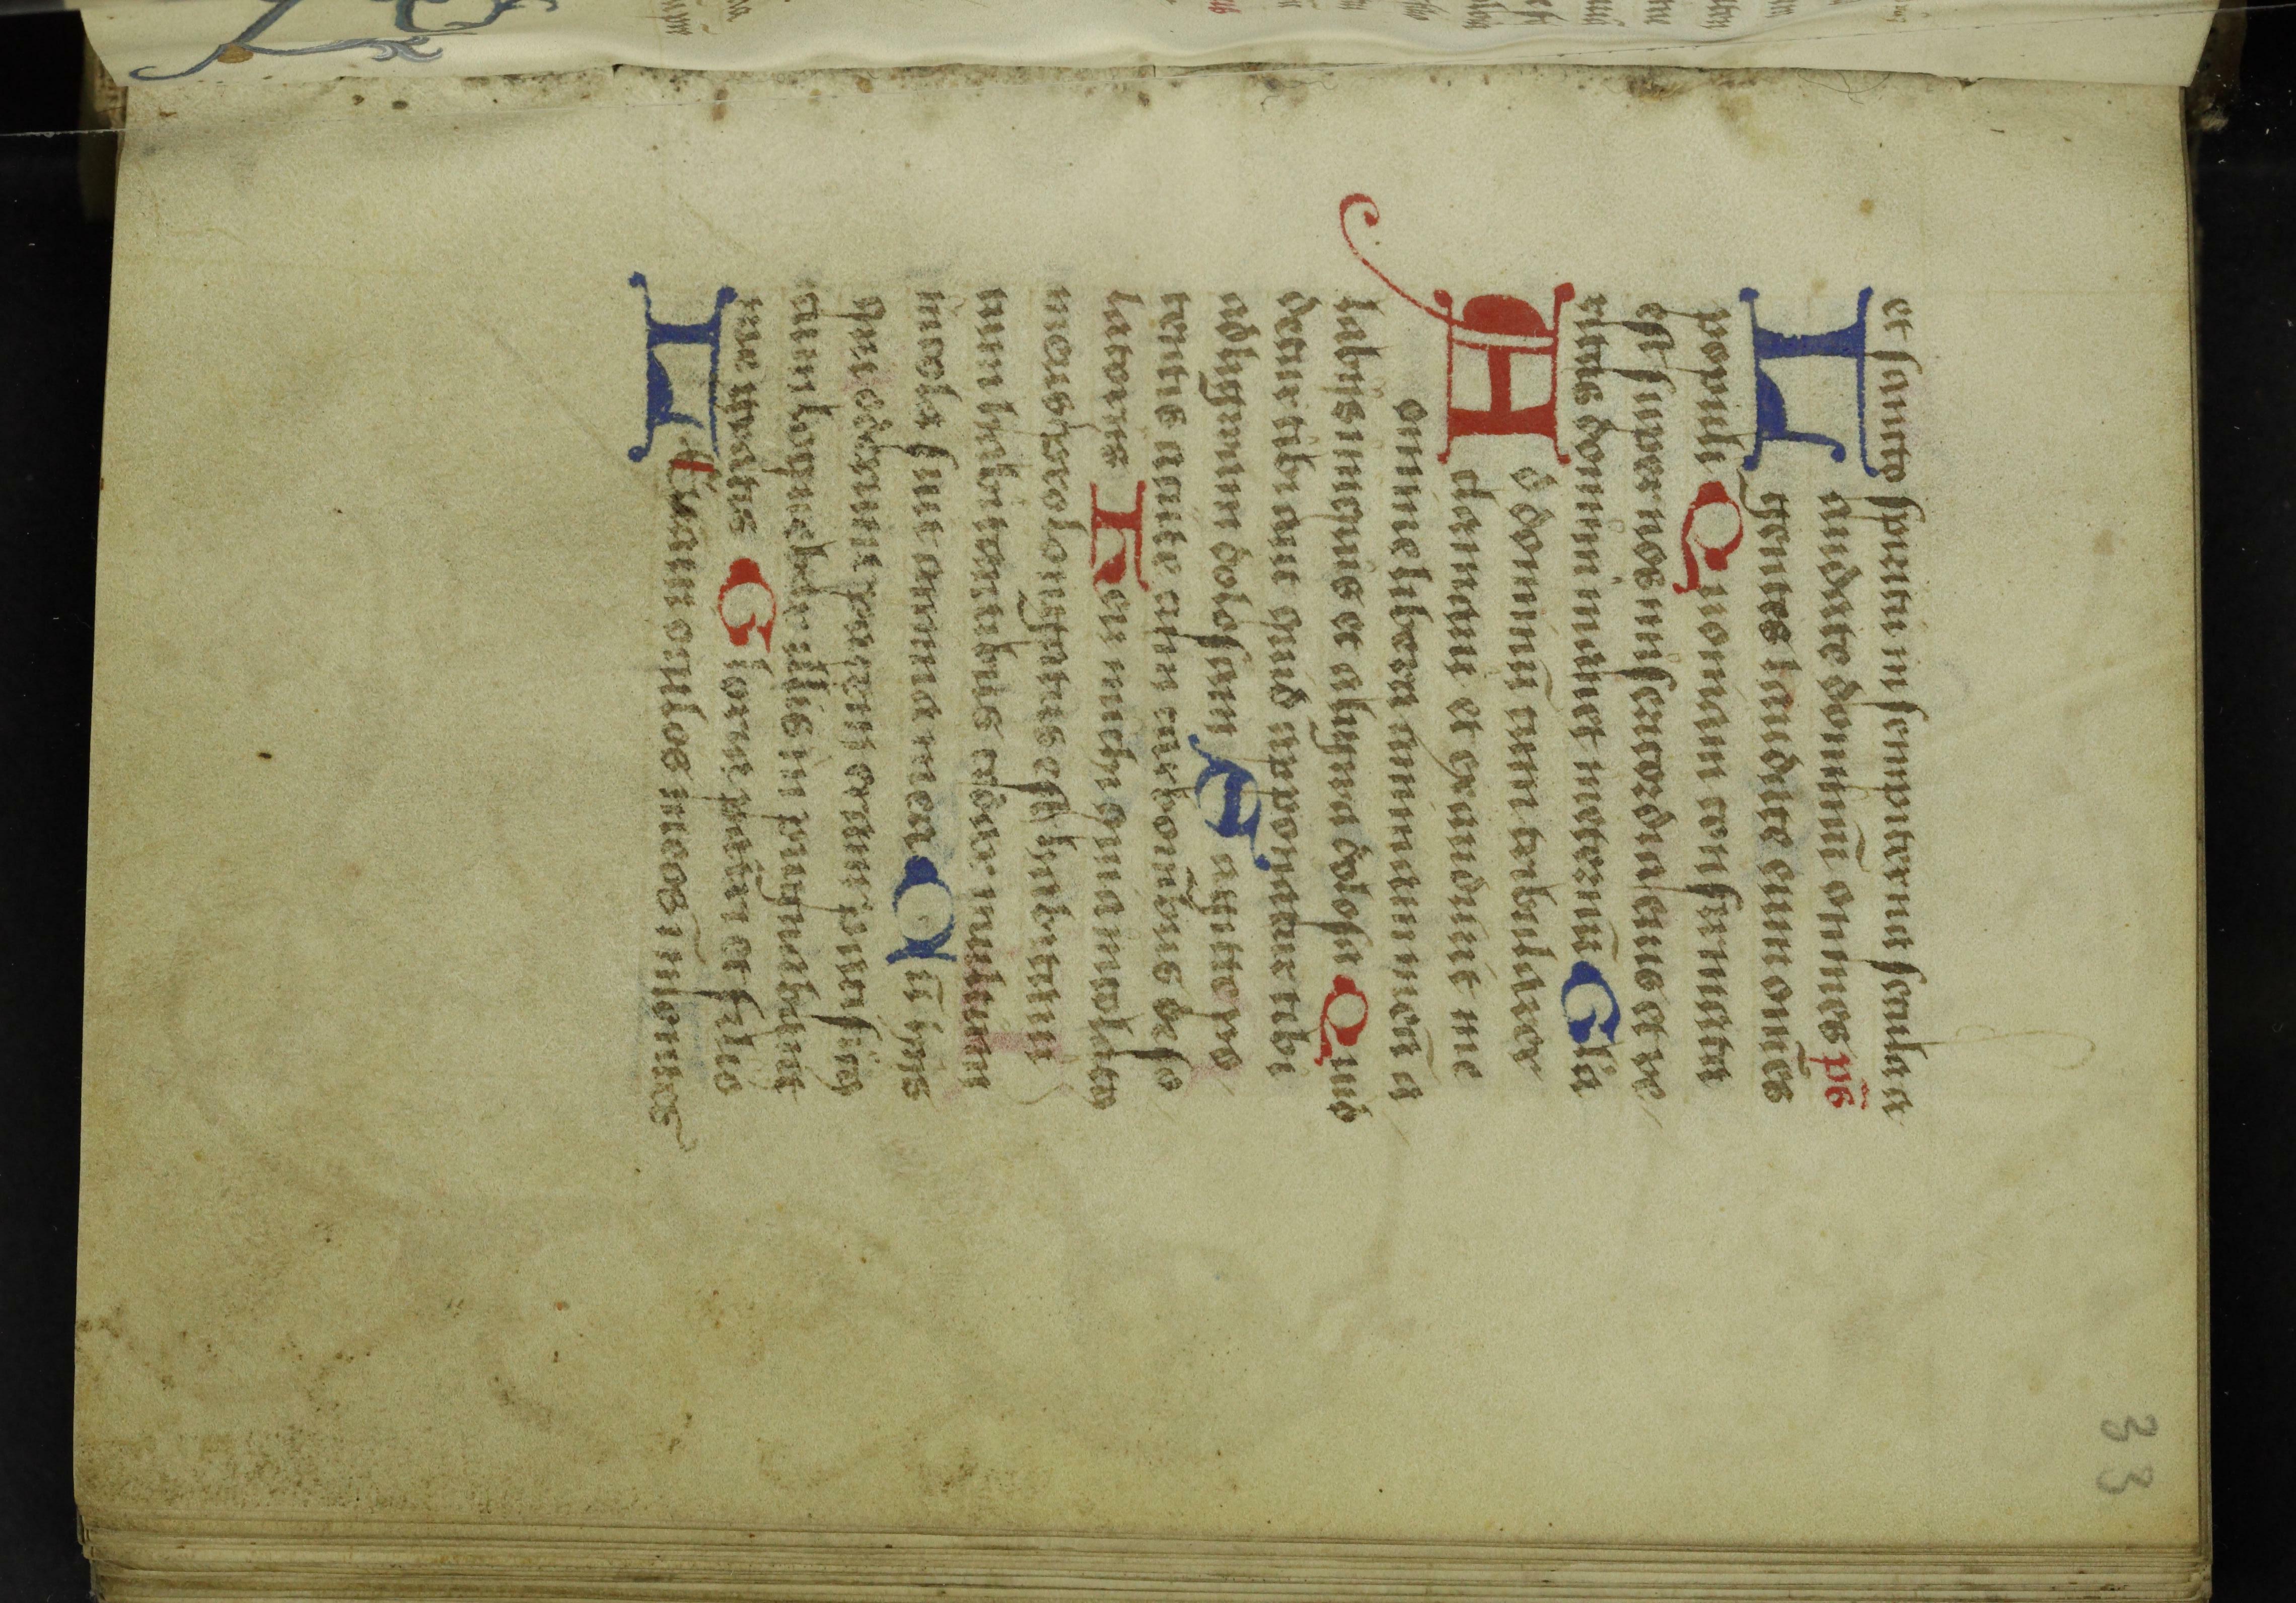 et sancto spiritu in sempiterna secula a
Laudate dominū omnes ps̄
gentes laudate eum om̄es
populi Quoniam confirmata
est super nos misericordia eius et ve
ritas domini manet in eternū Glīa
Ad dominū cum tribularer
clamaui et exaudiuit me
Domine libera animam meā a
labijs iniquis et a lingua dolosa Quid
detur tibi aut quid apponatur tibi
ad linguam dolosam Sagitte po
tentis acute cum carbonib̄us deso
latorijs Heu michi quia incolatus
meus prolongatus est habitaui
cum habitantibus cedar multum
incola fuit anima mea Cū hijs
qui oderunt pacem eram pacificus
cum loquebar illis impugnabant
me gratis Gloria patri et filio
Leuaui oculos meos ī montes
33